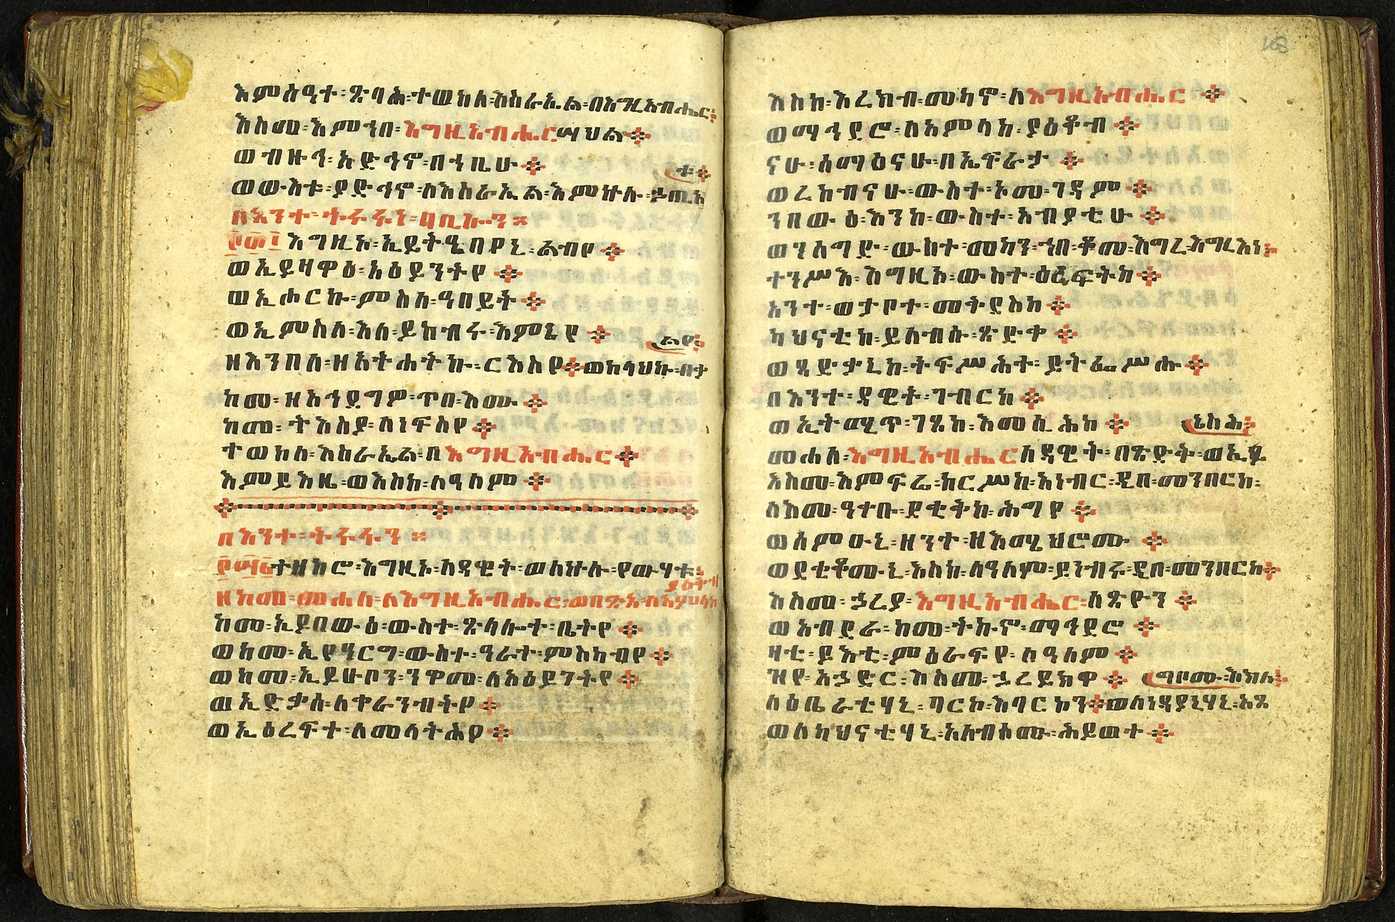 እምሰዓተ፡ጽባሕ፡ተወከለ፡እስራኤል፡በእግዚአብሔር፡
እስመ፡እምኀበ፡እግዚአብሔር፡ሣህል፨
ወብዙኅ፡አድኅኖ፡በኀቤሁ፨
ቱ፨
ወውእቱ፡ያድኅኖ፡ለእስራኤል፡እምኵሉ፡ኃጢአ
በእንተ፡ትሩፋን፡
እግዚኦ፡ኢይትዔበየኒ፡ልብየ፨
ወኢይዛዋዕ፡አዕይንትየ፨
ወኢሖርኩ፡ምስለ፡ዓበይት፨
ወኢምስለ፡እለ፡ይከብሩ፡እምኔየ፨
ልየ፨
ዘእንበለ፡ዘአትሐትኩ፡ርእስየ፨ወከላህኩ፡በቃ
ከመ፡ዘአኅደግዎ፡ጥበ፡እሙ፨
ከመ፡ትእስያ፡ለነፍስየ፨
ተወከለ፡እስራኤል፡በእግዚአብሔር፨
እምይእዜ፡ወእስከ፡ለዓለም፨
በእንተ፡ትሩፋን፡
ተዘከሮ፡እግዚኦ፡ለዳዊት፡ወለኵሉ፡የውሃቱ፡
ያዕቆብ
ዘከመ፡መሐለ፡ለእግዚአብሔር፡ወበፅአ፡ለአምላከ
ከመ፡ኢይበውዕ፡ውስተ፡ጽላሎተ፡ቤትየ፨
ወከመ፡ኢየዓርግ፡ውስተ፡ዓራተ፡ምስካብየ፨
ወከመ፡ኢይሁቦን፡ንዋመ፡ለአዕይንትየ፨
ወኢድቃሰ፡ለቀራንብትየ፨
ወኢዕረፍተ፡ለመላትሕየ፨
እስከ፡እረክብ፡መካኖ፡ለእግዚአብሔር፨
ወማኅደሮ፡ለአምላከ፡ያዕቆብ፨
ናሁ፡ሰማዕናሁ፡በኤፍራታ፨
ወረከብናሁ፡ውስተ፡ኦመ፡ገዳም፨
ንበውዕ፡እንከ፡ውስተ፡አብያቲሁ፨
ወንሰግድ፡ውስተ፡መካን፡ኀበ፡ቆመ፡እግረ፡እግዚእነ፨
ተንሥእ፡እግዚኦ፡ውስተ፡ዕረፍትከ፨
አንተ፡ወታቦተ፡መቅደስከ፨
ካህናቲከ፡ይለብሱ፡ጽድቀ፨
ወጻድቃኒከ፡ትፍሥሕተ፡ይትፌሥሑ፨
በእንተ፡ዳዊት፡ገብርከ፨
ወኢትሚጥ፡ገጸከ፡እመሲሕከ፨
ኔስሕ፨
መሐለ፡እግዚአብሔር፡ለዳዊት፡በጽድቅ፡ወኢይ
እስመ፡እምፍሬ፡ከርሥከ፡እነብር፡ዲበ፡መንበርከ፡
ለእመ፡ዓቀቡ፡ደቂቅከ፡ሕግየ፨
ወስምዑኒ፡ዘንተ፡ዘእሜህሮሙ፨
ወደቂቆሙኒ፡እስከ፡ለዓለም፡ይነብሩ፡ዲበ፡መንበርከ፨
እስመ፡ኃረያ፡እግዚአብሔር፡ለጽዮን፨
ወአብደራ፡ከመ፡ትኩኖ፡ማኅደሮ፨
ዛቲ፡ይእቲ፡ምዕራፍየ፡ለዓለም፨
ዝየ፡አኃድር፡እስመ፡ኃረይክዋ፨ አግቦሙ፡እክለ፨
ለዕቤራቲሃኒ፡ባርኮ፡እባርኮን፨ወለነዳያኒሃኒ፡አጸ
ወለካህናቲሃኒ፡አአብሶሙ፡ሕይወተ፨